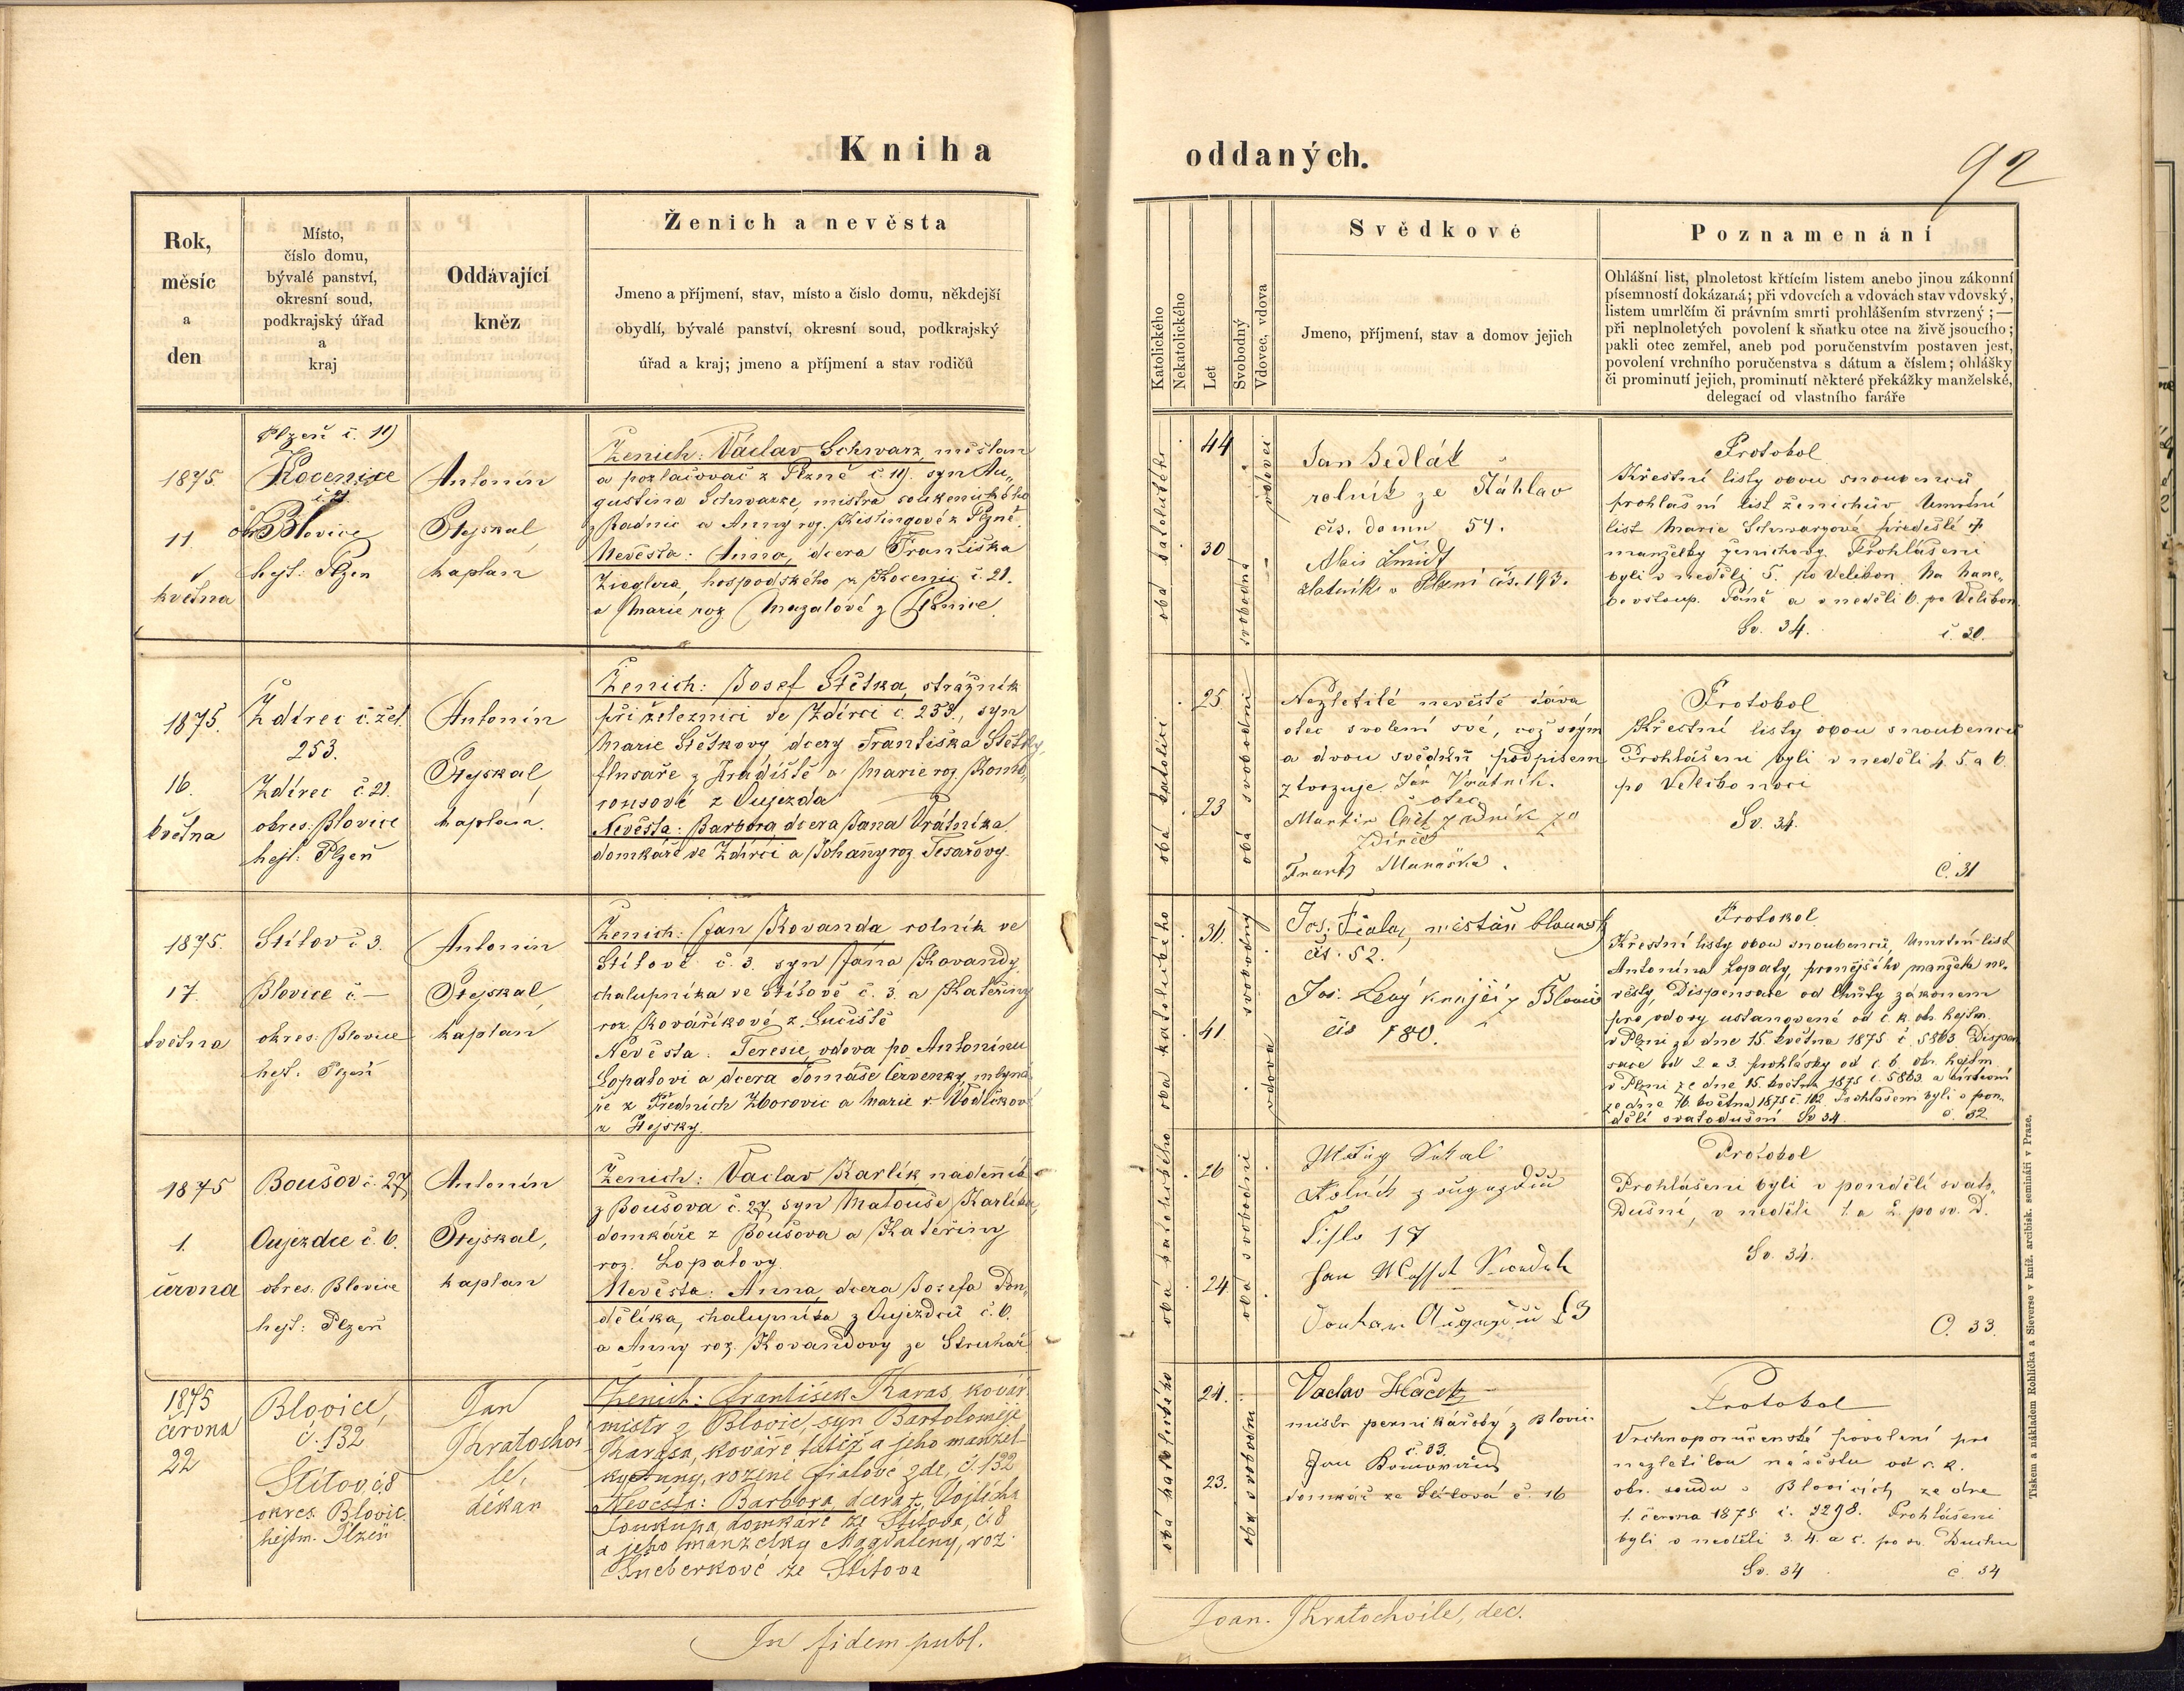 Kniha
oddaných.
92
Rok,
měsíc
a
den
Místo,
číslo domu,
bývalé panství,
okresní soud,
podkrajský úřad
a
kraj
Oddávající
kněz
Ženich a nevěsta
Jmeno a příjmení, stav, místo a číslo domu, někdejší
obydlí, bývalé panství, okresní soud, podkrajský
úřad a kraj; jmeno a příjmení a stav rodičů
Katolického
Nekatolického
Let
Svobodný
Vdovec, vdova
Svědkové
Jmeno, příjmení, stav a domov jejich
Poznamenání
Ohlášní list, plnoletost křtícím listem anebo jinou zákonní
písemností dokázaná; při vdovcích a vdovách stav vdovský,
listem umrlčím či právním smrti prohlášením stvrzený ; —
při neplnoletých povolení k sňatku otce na živě jsoucího;
pakli otec zemřel, aneb pod poručenstvím postaven jest,
povolení vrchního poručenstva s dátum a číslem; ohlášky
či prominutí jejich, prominutí některé překážky manželské,
delegací od vlastního faráře
1875
11.
května
Plzeň č. 19
Kocenice
č. 21
okr. Blovice
hejt: Plzen
Antonín
Stejskal,
kaplan
Ženich: Václav Schwarz, měšťan
a pozlačovač z Plzně č. 19. syn Au„
gustina Schwarze, mistra soukenického
z Radnic a Anny roz. Kislingové z Plzně.
Nevěsta: Anna, dcera Františka
Zieglera, hospodského z Kocenic č. 21.
a Marie roz. Mazalové z
oba katolického
44
30
vdovec
svobodná
Jan Sedlák
rolník ze Stáhlav
čís. domu 54.
Alois Šmidt
zlatník v Plzni čís. 193.
Protokol
Křestní listy obou snoubenců
prohlašní list ženichův, Umrtní
list Marie Schwarzové předešlé †
manželky ženichovy. Prohlášeni
byli v neděli 5. po Velikon. Na Nane„
bevstoup. Páně a v neděli 6. po Velikon.
Sv. 34.
č. 30.
1875.
16.
května
Ždírec č. žel.
253.
Ždírec č. 21.
okres: Blovice
hejt: Plzeň
Antonín
Stejskal,
kaplan.
Ženich: Josef Štětka, strážník
při železnici ve Ždírci č. 253., syn
Marie Štětkovy, dcery Františka Štětky,
flusaře z Hradiště a Marie roz.
z Oujezda
Nevěsta: Barbora dcera Jana Vrátníka
domkáře ve Ždírci a Johany roz. Tesařovy.
oba katolíci
25
23
oba svobodni
Nezletilé nevěstě dává
otec svolení své, což svým
a dvou svědků podpisem
ztvrzuje. Jan Vrátník.
otec
Martin
Ždírce
Frant. Maruška.
Protokol
Křestní listy obou snoubenců
Prohlášeni byli v neděli 4. 5 a 6.
po Velikonoci
Sv. 34.
č. 31
1875.
17.
května
Štítov č 3.
Blovice č. —
okres: Blovice
hejt. Plzeň
Antonin
Stejskal,
kaplan
Ženich: Jan Kovanda rolník ve
Štítově č. 3. syn Jána Kovandy,
chalupníka ve Štítově č. 3. a Kateřiny
roz. Kovaříkové z Lučiště
Nevěsta: Teresie, vdova po Antonínu
Lopatovi a dcera Tomáše Červenky, mlyná„
ře z Předních Zborovic a Marie r. Vodičkové
z
oba katolického
31.
41.
svobodný
vdova
Jos. Fiala, městan blovický
čís. 52.
Jos. Levý krejčí z Blovic
čís 180.
Protokol
Křestní listy obou snoubenců, Umrtní list
Antonína Lopaty, prvnějšího manžela ne„
věsty, Dispensace od lhůty zákonem
pro vdovy ustanovené od c. k. okr. hejtm.
v Plzni ze dne 15. května 1875 č. 5863. Dispen
sace od 2 a 3. prohlášky od c. k. okr. hejtm.
v Plzni ze dne 15. května 1875 č. 5863. a církevní
ze dne 16. května 1875 č. 162. Prohlášeni byli v pon„
dělí svatodušní. Sv 34.
č. 32
1875
1.
června
Boušov č. 27
Oujezdce č. 6.
okres: Blovice
hejt: Plzeň
Antonín
Stejskal,
kaplan
Ženich: Vaclav Karlík nadeník
z Boušova č. 27. syn Matouše Karlíka,
domkáře z Boušova a Kateřiny
roz. Lopatovy.
Nevěsta: Anna, dcera Josefa Pon„
dělíka, chalupníka z Oujezdců č. 6.
a Anny roz. Kovandovy ze Struhař
oba katolického
26
24
oba svobodní
Rolník z
17
Jan
Protokol
Prohlášeni byli v pondělí svato„
Dušní, v neděli 1. a 2. po sv. D.
Sv. 34.
č. 33.
1875
června
22
Blovice,
č. 132
Štítov, č. 8
okres. Blovic.
hejtm. Plzeň
Jan
Kratochvi
le,
děkan
Ženich: František Karas, kovář.
mistr z Blovic, syn Bartoloměje
Karasa, kováře tutéž a jeho manžel
ky Anny, rozené Fialové zde, č. 132
Nevěsta: Barbora, dcera † Vojtěcha
Souskupa, domkáře ze Štítova, č. 8
a jeho manželky Magdaleny, roz.
ze Štítova
oba katolického
24.
23.
oba svobodní
Vaclav Háček
mistr perníkářský z Blovic
č. 33.
Jan
domkář ze Štítova č. 16
Protokol
Vrchnoporučenské povolení pro
nezletilou nevěstu od c. k.
okr. soudu v Blovicích ze dne
1. června 1875 č. 2298. Prohlášeni
byli v neděli 3. 4. a 5. po sv. Duchu
Sv. 34
č. 34
In fidem publ.
Joan. Kratochvile, dec.
Tiskem a nákladem Rohlíčka a Sieverse v kníž. arcibisk. semináři v Praze.